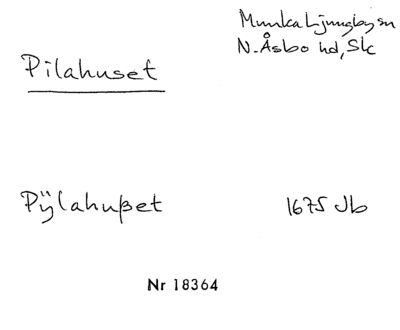 Munka Ljungby sn
N. Åsbo hd, Skc
Pilahuset
Pÿlahußet 1675 Jb
Nr 18364